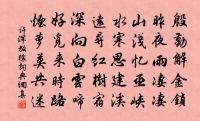 殷勤解金鎖
昨夜雨淒淒
山淺憶巫峽
水寒思建溪
遠尋紅樹宿
深向白雲啼
好覓來時路
煙蘿莫共迷
許渾放猿